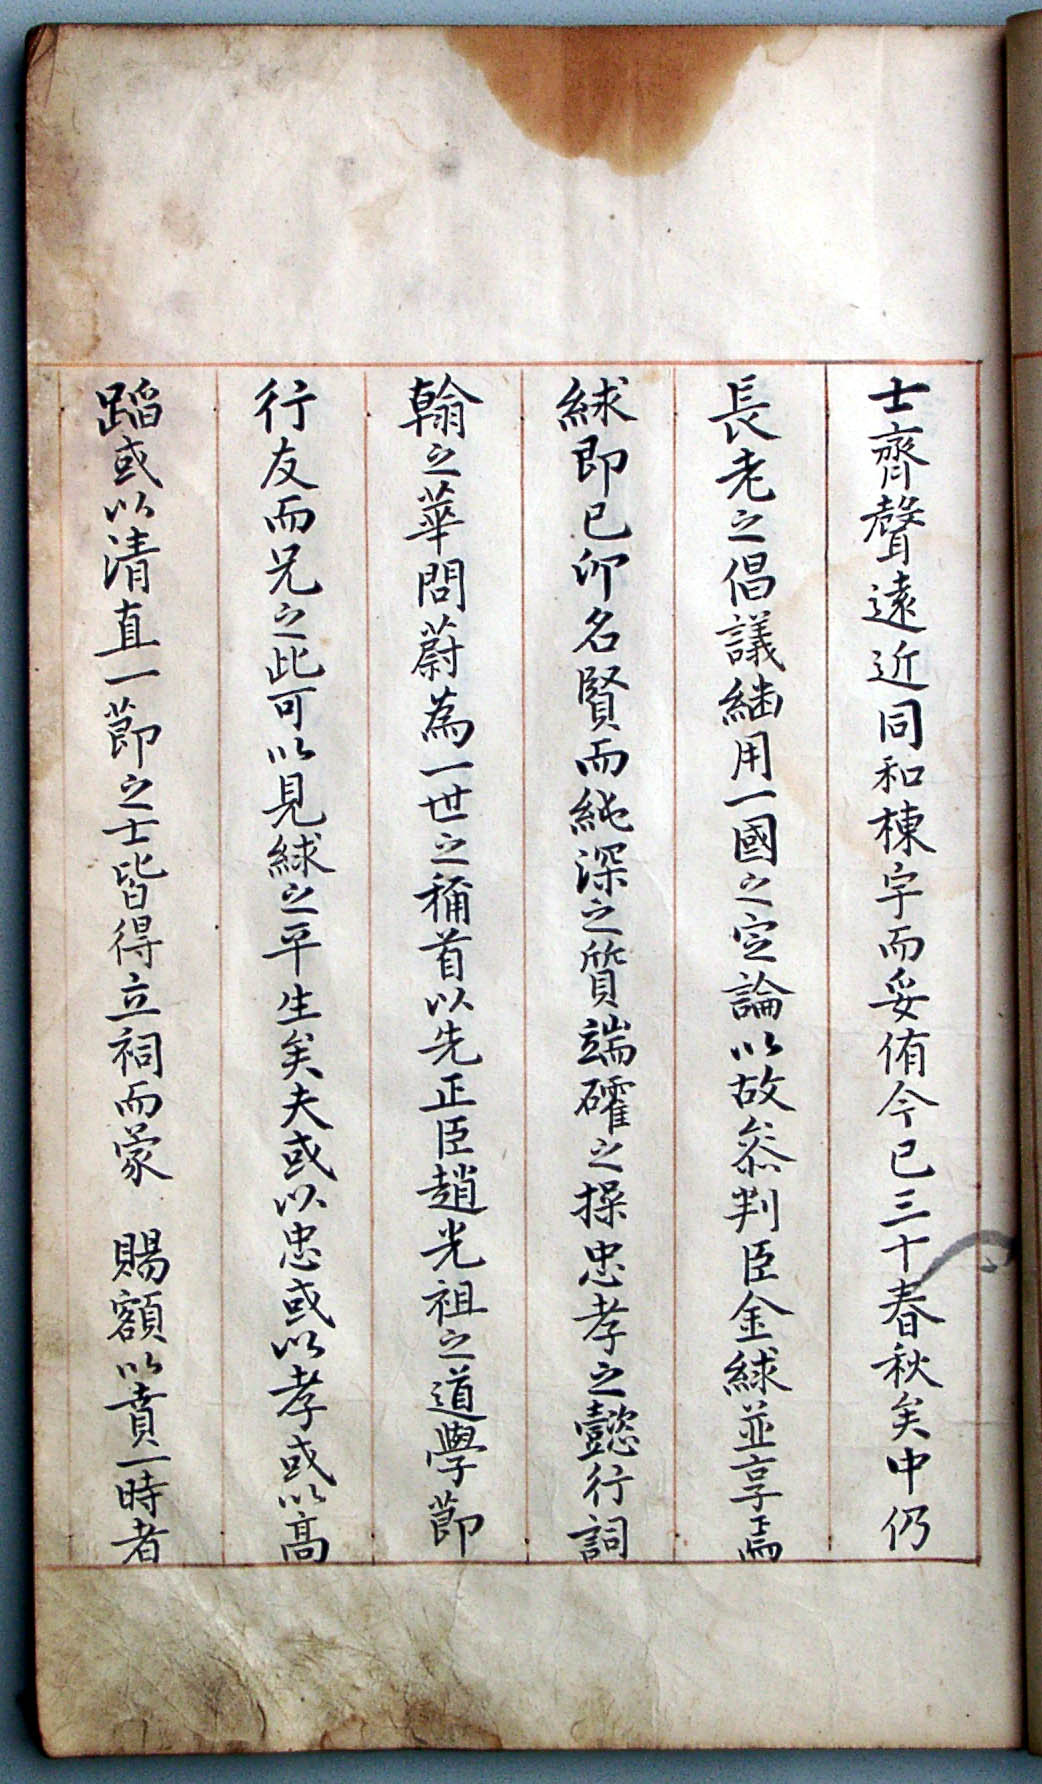 士齊聲遠近同和棟宇而妥侑今已三十春秋矣中仍
長老之倡議緬用一國之定論以故叅判臣金絿並享焉
絿即己卯名賢而純深之質端確之操忠孝之懿行詞
翰之華問蔚為一世之稱首以先正臣趙光祖之道學節
行友而兄之此可以見絿之平生矣夫或以忠或以孝或以高
蹈或以清直一節之士皆得立祠而蒙 賜額以賁一時者